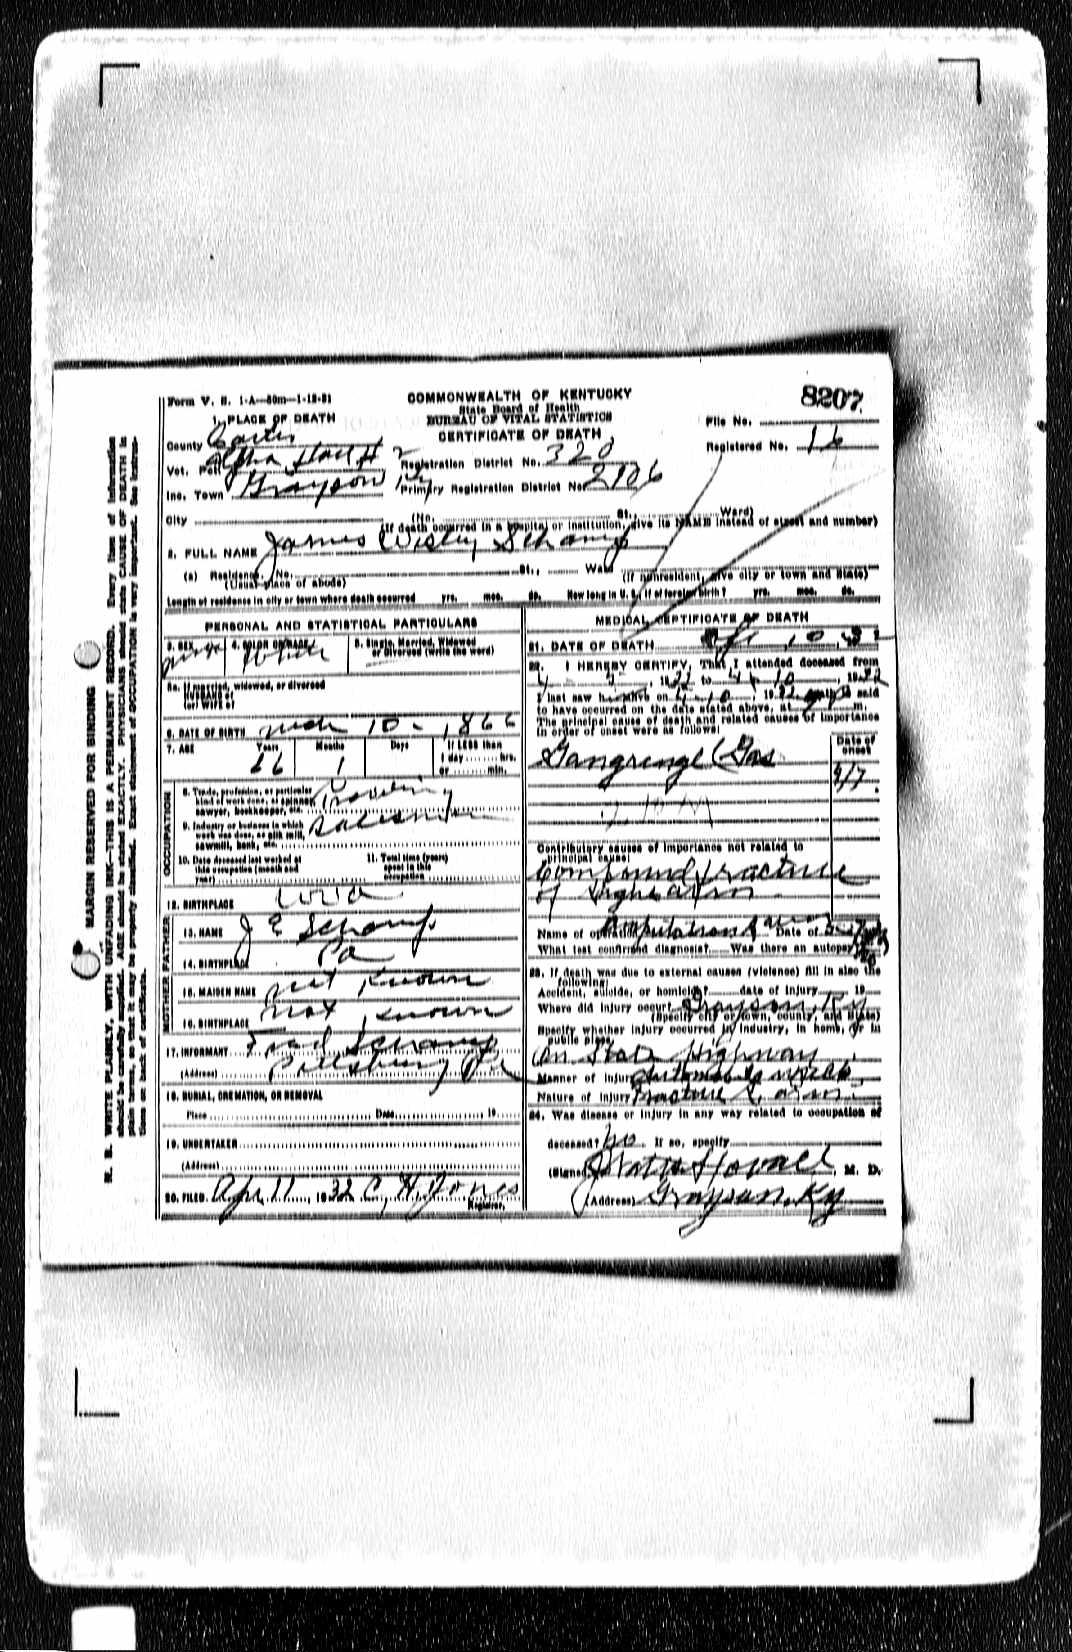 Form V. S. 1-A—50m—1-12-31
COMMONWEALTH OF KENTUCKY
State Board of Health
BUREAU OF VITAL STATISTICS
CERTIFICATE OF DEATH
8207
File No.
Registered No. 16
1. PLACE OF DEATH
County Carter
Vot. Pct.
Inc. Town Grayson Ky
Registration District No. 320
Primary Registration District No. 2106
City (No. St., Ward)
(If death occurred in a hospital or institution, give its NAME instead of street and number)
2. FULL NAME James Wisley Schamp
(a) Residence. No. St., Ward
(Usual place of abode) (If nonresident, give city or town and State)
Length of residence in city or town where death occurred yrs. mos. ds. How long in U. S., if of foreign birth? yrs. mos. ds.
PERSONAL AND STATISTICAL PARTICULARS
3. SEX 4. COLOR OR RACE White 5. Single, Married, Widowed
or Divorced (write the word)
5a. If married, widowed, or divorced
HUSBAND of
(or) WIFE of
6. DATE OF BIRTH Mch 10 - 1866
7. AGE Years Months Days If LESS than
66 1 1 day hrs.
or min.
OCCUPATION
8. Trade, profession, or particular
kind of work done, as spinner,
sawyer, bookkeeper, etc.
9. Industry or business in which
work was done, as silk mill,
sawmill, bank, etc. Salesman
10. Date deceased last worked at
this occupation (month and
year)
11. Total time (years)
spent in this
occupation
12. BIRTHPLACE
FATHER
13. NAME J E Schamp
14. BIRTHPLACE Pa
MOTHER
15. MAIDEN NAME not known
16. BIRTHPLACE not known
17. INFORMANT Fred Schamp
(Address) Pittsburg Pa
18. BURIAL, CREMATION, OR REMOVAL
Place Date 19
19. UNDERTAKER
(Address)
20. FILED Apr 11, 1932 C, H, Jones
Registrar.
MEDICAL CERTIFICATE OF DEATH
21. DATE OF DEATH Apr 10, 32
22. I HEREBY CERTIFY, That I attended deceased from
to 4-10, 1932
I last saw h alive on 4-10, 1932 death is said
to have occurred on the date stated above, at m.
The principal cause of death and related causes of importance
in order of onset were as follows:
Date of
onset
Gangringe (Gas 4/7
Contributory cause of importance not related to
principal cause:
Compound fracture
of right arm
Name of operation Amputation Date of
What test confirmed diagnosis? Was there an autopsy? No
23. If death was due to external causes (violence) fill in also the
following:
Accident, suicide, or homicide? date of injury 19
Where did injury occur? Grayson, Ky
(Specify city or town, county, and State)
Specify whether injury occurred in industry, in home, or in
public place.
On State Highway
Manner of injury Automobile wreck
Nature of injury Fracture R. arm.
24. Was disease or injury in any way related to occupation of
deceased? No. If so, specify
(Signed) Stovall, M. D.
(Address) Grayson, Ky
MARGIN RESERVED FOR BINDING
N. B. WRITE PLAINLY, WITH UNFADING INK—THIS IS A PERMANENT RECORD. Every item of information
should be carefully supplied. AGE should be stated EXACTLY. PHYSICIANS should state CAUSE OF DEATH in
plain terms, so that it may be properly classified. Exact statement of OCCUPATION is very important. See instruc-
tions on back of certificate.